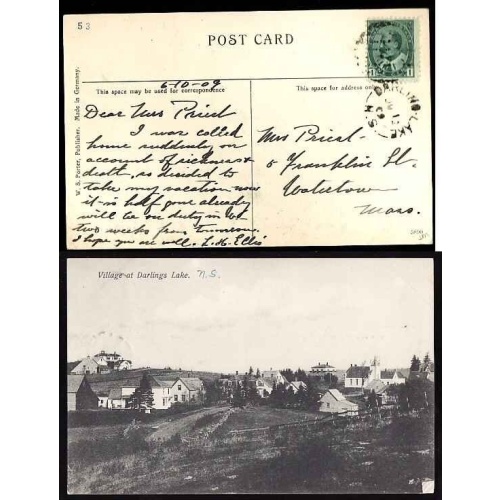 53
POST CARD
6-10-09
This space may be used for correspondence
This space for address only
W. S. Porter, Publisher. Made in Germany.
Dear Mrs Priest
I was called
home suddenly on
account of sickness &
death, so decided to
take my vacation now
it is half gone already
will be on duty in
two weeks from tomorrow.
I hope you are well. L. H. Ellis
Mrs Priest
8 Franklin St.
Watertown
Mass.
DARLING LAKE
N.S.
Village at Darlings Lake. N.S.